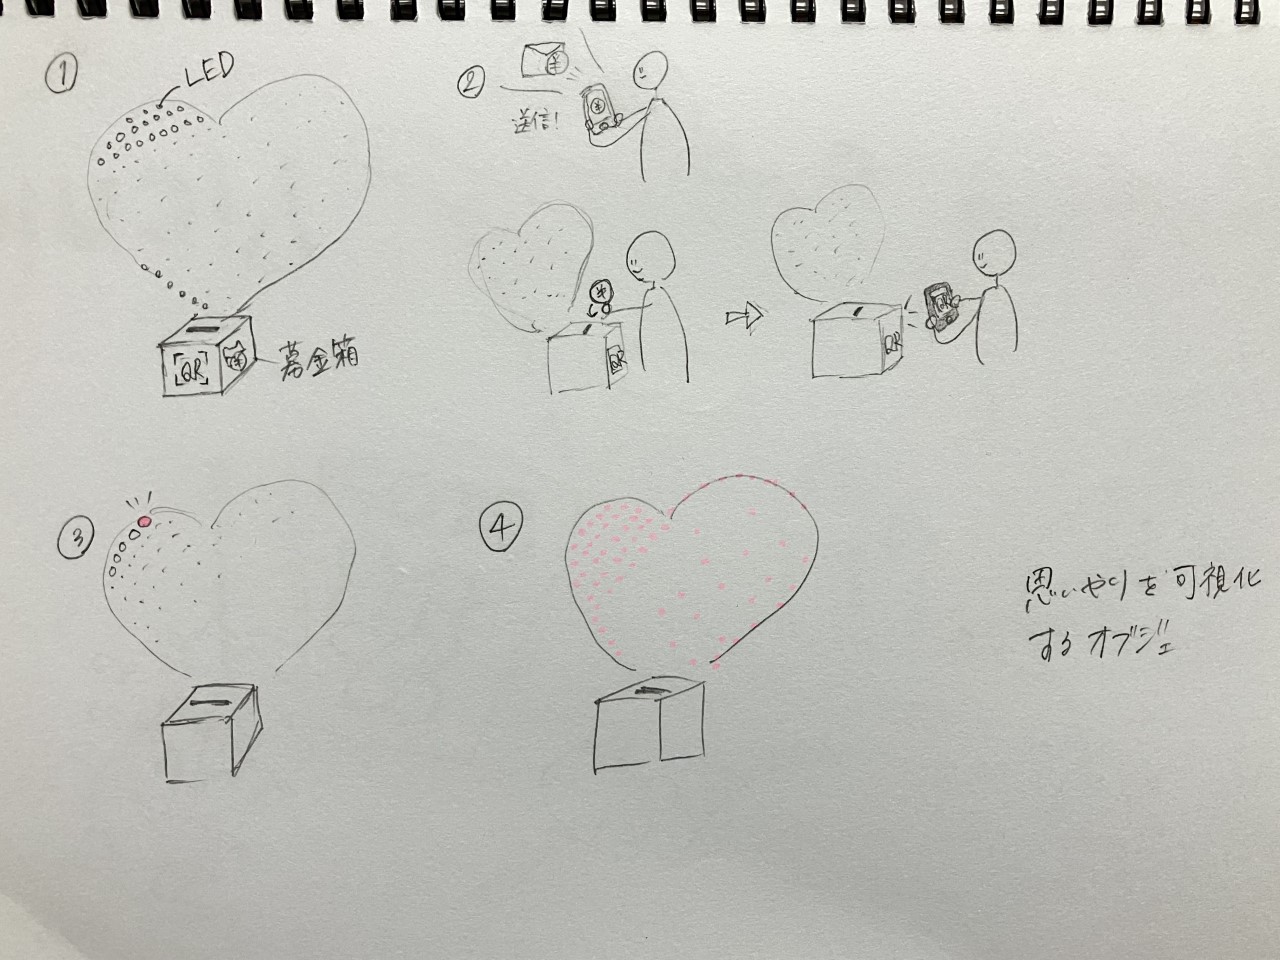 ①
LED
QR
¥
募金箱
②
¥
¥
送信!
¥
QR
QR
QR
③
④
思いやりを可視化
するオブジェ